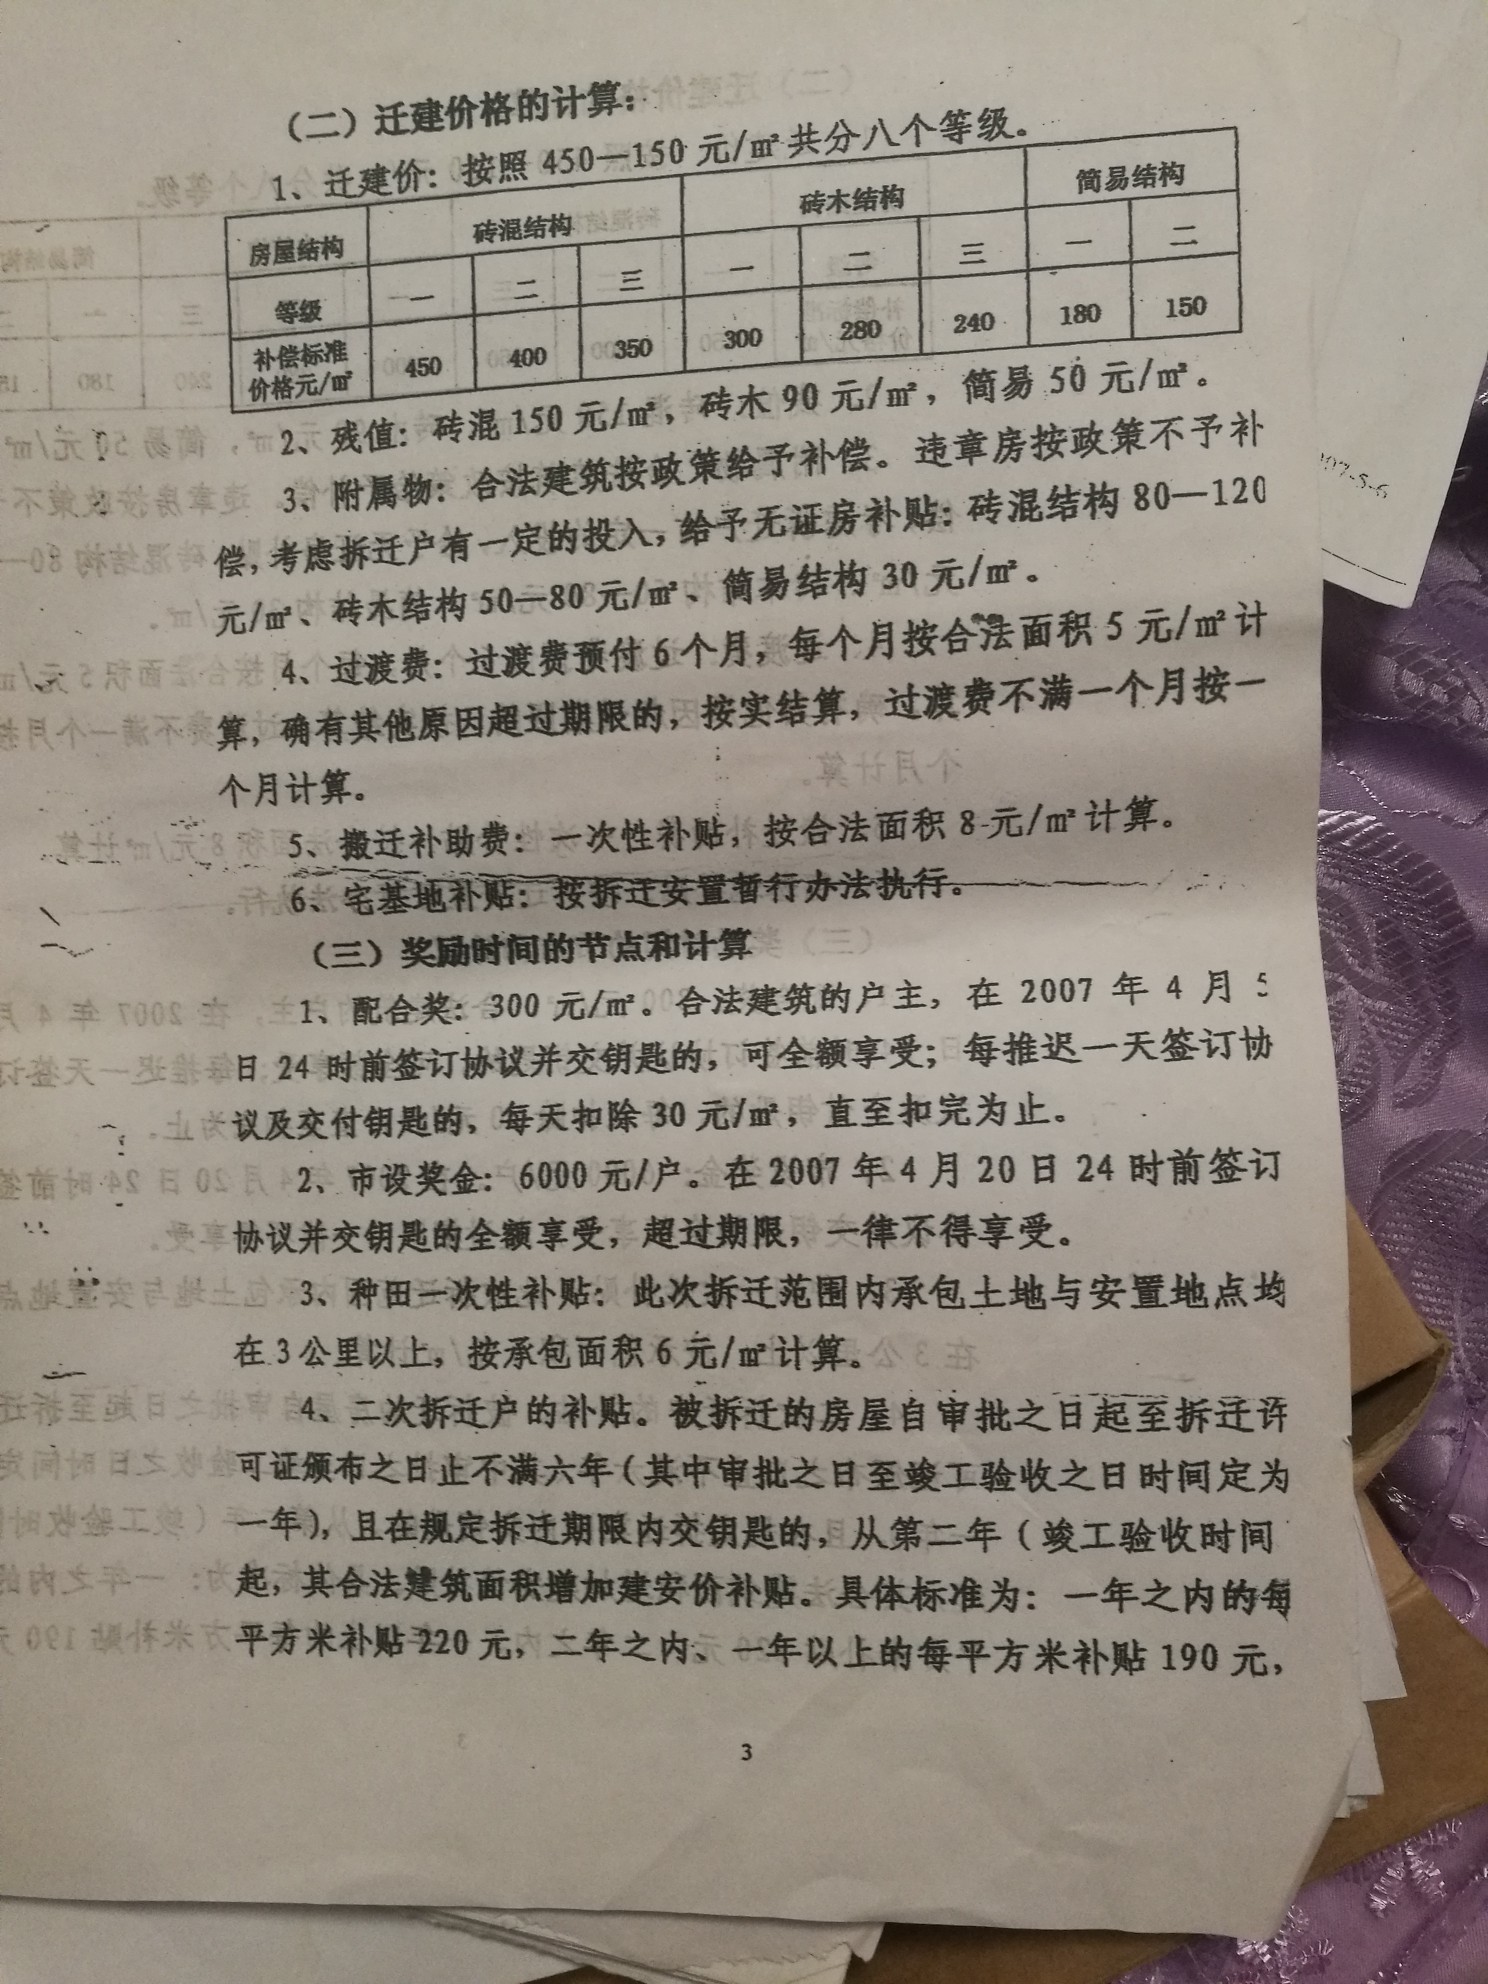 （二）迁建价格的计算：
1、迁建价：按照 450—150 元/㎡共分八个等级。
房屋结构 砖混结构 砖木结构 简易结构
等级 一 二 三 一 二 三 一 二
补偿标准
价格元/㎡ 450 400 350 300 280 240 180 150
2、残值：砖混 150 元/㎡，砖木 90 元/㎡，简易 50 元/㎡。
3、附属物：合法建筑按政策给予补偿。违章房按政策不予补
偿，考虑拆迁户有一定的投入，给予无证房补贴：砖混结构 80—120
元/㎡、砖木结构 50—80 元/㎡、简易结构 30 元/㎡。
4、过渡费：过渡费预付 6 个月，每个月按合法面积 5 元/㎡计
算，确有其他原因超过期限的，按实结算，过渡费不满一个月按一
个月计算。
5、搬迁补助费：一次性补贴，按合法面积 8 元/㎡计算。
6、宅基地补贴：按拆迁安置暂行办法执行。
（三）奖励时间的节点和计算
1、配合奖：300 元/㎡。合法建筑的户主，在 2007 年 4 月 5
日 24 时前签订协议并交钥匙的，可全额享受；每推迟一天签订协
议及交付钥匙的，每天扣除 30 元/㎡，直至扣完为止。
2、市设奖金：6000 元/户。在 2007 年 4 月 20 日 24 时前签订
协议并交钥匙的全额享受，超过期限，一律不得享受。
3、种田一次性补贴：此次拆迁范围内承包土地与安置地点均
在 3 公里以上，按承包面积 6 元/㎡计算。
4、二次拆迁户的补贴。被拆迁的房屋自审批之日起至拆迁许
可证颁布之日止不满六年（其中审批之日至竣工验收之日时间定为
一年），且在规定拆迁期限内交钥匙的，从第二年（竣工验收时间
起，其合法建筑面积增加建安价补贴。具体标准为：一年之内的每
平方米补贴 220 元，二年之内、一年以上的每平方米补贴 190 元，
3